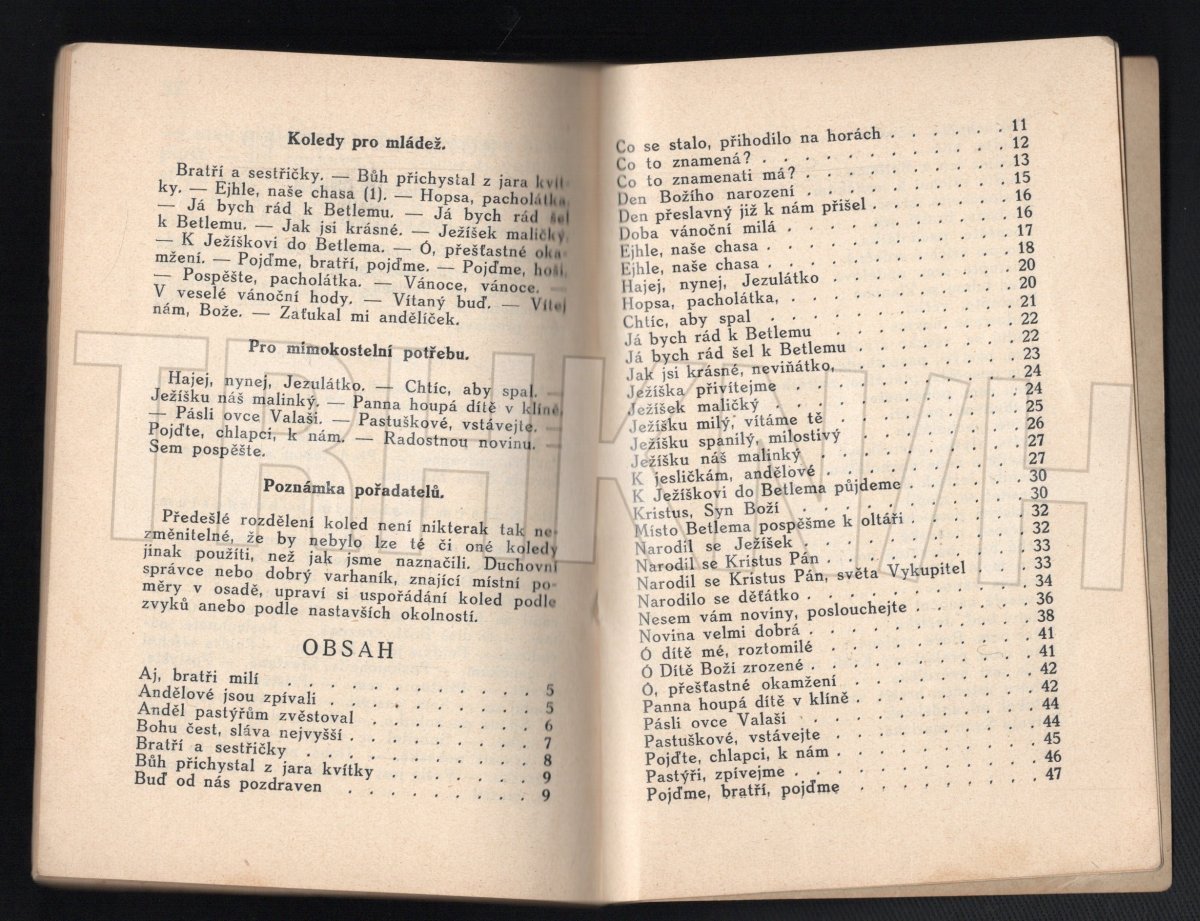 Koledy pro mládež.
Bratří a sestřičky. — Bůh přichystal z jara kvít-
ky. — Ejhle, naše chasa (1). — Hopsa, pacholátka.
— Já bych rád k Betlemu. — Já bych rád šel
k Betlemu. — Jak jsi krásné. — Ježíšek maličký.
— K Ježíškovi do Betlema. — Ó, přešťastné oka-
mžení. — Pojďme, bratří, pojďme. — Pojďme, hoši.
— Pospěšte, pacholátka. — Vánoce, vánoce. —
V veselé vánoční hody. — Vítaný buď. — Vítej
nám, Bože. — Zaťukal mi andělíček.
Pro mimokostelní potřebu.
Hajej, nynej, Jezulátko. — Chtíc, aby spal. —
Ježíšku náš malinký. — Panna houpá dítě v klíně.
— Pásli ovce Valaši. — Pastuškové, vstávejte. —
Pojďte, chlapci, k nám. — Radostnou novinu. —
Sem pospěšte.
Poznámka pořadatelů.
Předešlé rozdělení koled není nikterak tak ne-
změnitelné, že by nebylo lze té či oné koledy
jinak použíti, než jak jsme naznačili. Duchovní
správce nebo dobrý varhaník, znající místní po-
měry v osadě, upraví si uspořádání koled podle
zvyků anebo podle nastavších okolností.
OBSAH
Aj, bratři milí . . . . . . . . . 5
Andělové jsou zpívali . . . . . . . . 5
Anděl pastýřům zvěstoval . . . . . . . 6
Bohu čest, sláva nejvyšší . . . . . . . 7
Bratří a sestřičky . . . . . . . . . 8
Bůh přichystal z jara kvítky . . . . . . 9
Buď od nás pozdraven . . . . . . . . 9
Co se stalo, přihodilo na horách . . . . . . 11
Co to znamená? . . . . . . . . . 12
Co to znamenati má? . . . . . . . . 13
Den Božího narození . . . . . . . . 15
Den přeslavný již k nám přišel . . . . . . 16
Doba vánoční milá . . . . . . . . 16
Ejhle, naše chasa . . . . . . . . . 17
Ejhle, naše chasa . . . . . . . . . 18
Hajej, nynej, Jezulátko . . . . . . . 20
Hopsa, pacholátka, . . . . . . . . 20
Chtíc, aby spal . . . . . . . . . 21
Já bych rád k Betlemu . . . . . . . 22
Já bych rád šel k Betlemu . . . . . . 22
Jak jsi krásné, neviňátko, . . . . . . . 23
Ježíška přivítejme . . . . . . . . 24
Ježíšek maličký . . . . . . . . . 24
Ježíšku milý, vítáme tě . . . . . . . 25
Ježíšku spanilý, milostivý . . . . . . . 26
Ježíšku náš malinký . . . . . . . . 27
K jesličkám, andělové . . . . . . . . 27
K Ježíškovi do Betlema půjdeme . . . . . 30
Kristus, Syn Boží . . . . . . . . . 30
Místo Betlema pospěšme k oltáři . . . . . 32
Narodil se Ježíšek . . . . . . . . 32
Narodil se Kristus Pán . . . . . . . 33
Narodil se Kristus Pán, světa Vykupitel . . . . 33
Narodilo se děťátko . . . . . . . . 34
Nesem vám noviny, poslouchejte . . . . . 36
Novina velmi dobrá . . . . . . . . 38
Ó dítě mé, roztomilé . . . . . . . . 41
Ó Dítě Boží zrozené . . . . . . . . 41
Ó, přešťastné okamžení . . . . . . . 42
Panna houpá dítě v klíně . . . . . . . 42
Pásli ovce Valaši . . . . . . . . . 44
Pastuškové, vstávejte . . . . . . . . 44
Pojďte, chlapci, k nám . . . . . . . 45
Pastýři, zpívejme . . . . . . . . . 46
Pojďme, bratří, pojďme . . . . . . . 47
TRHKNIH